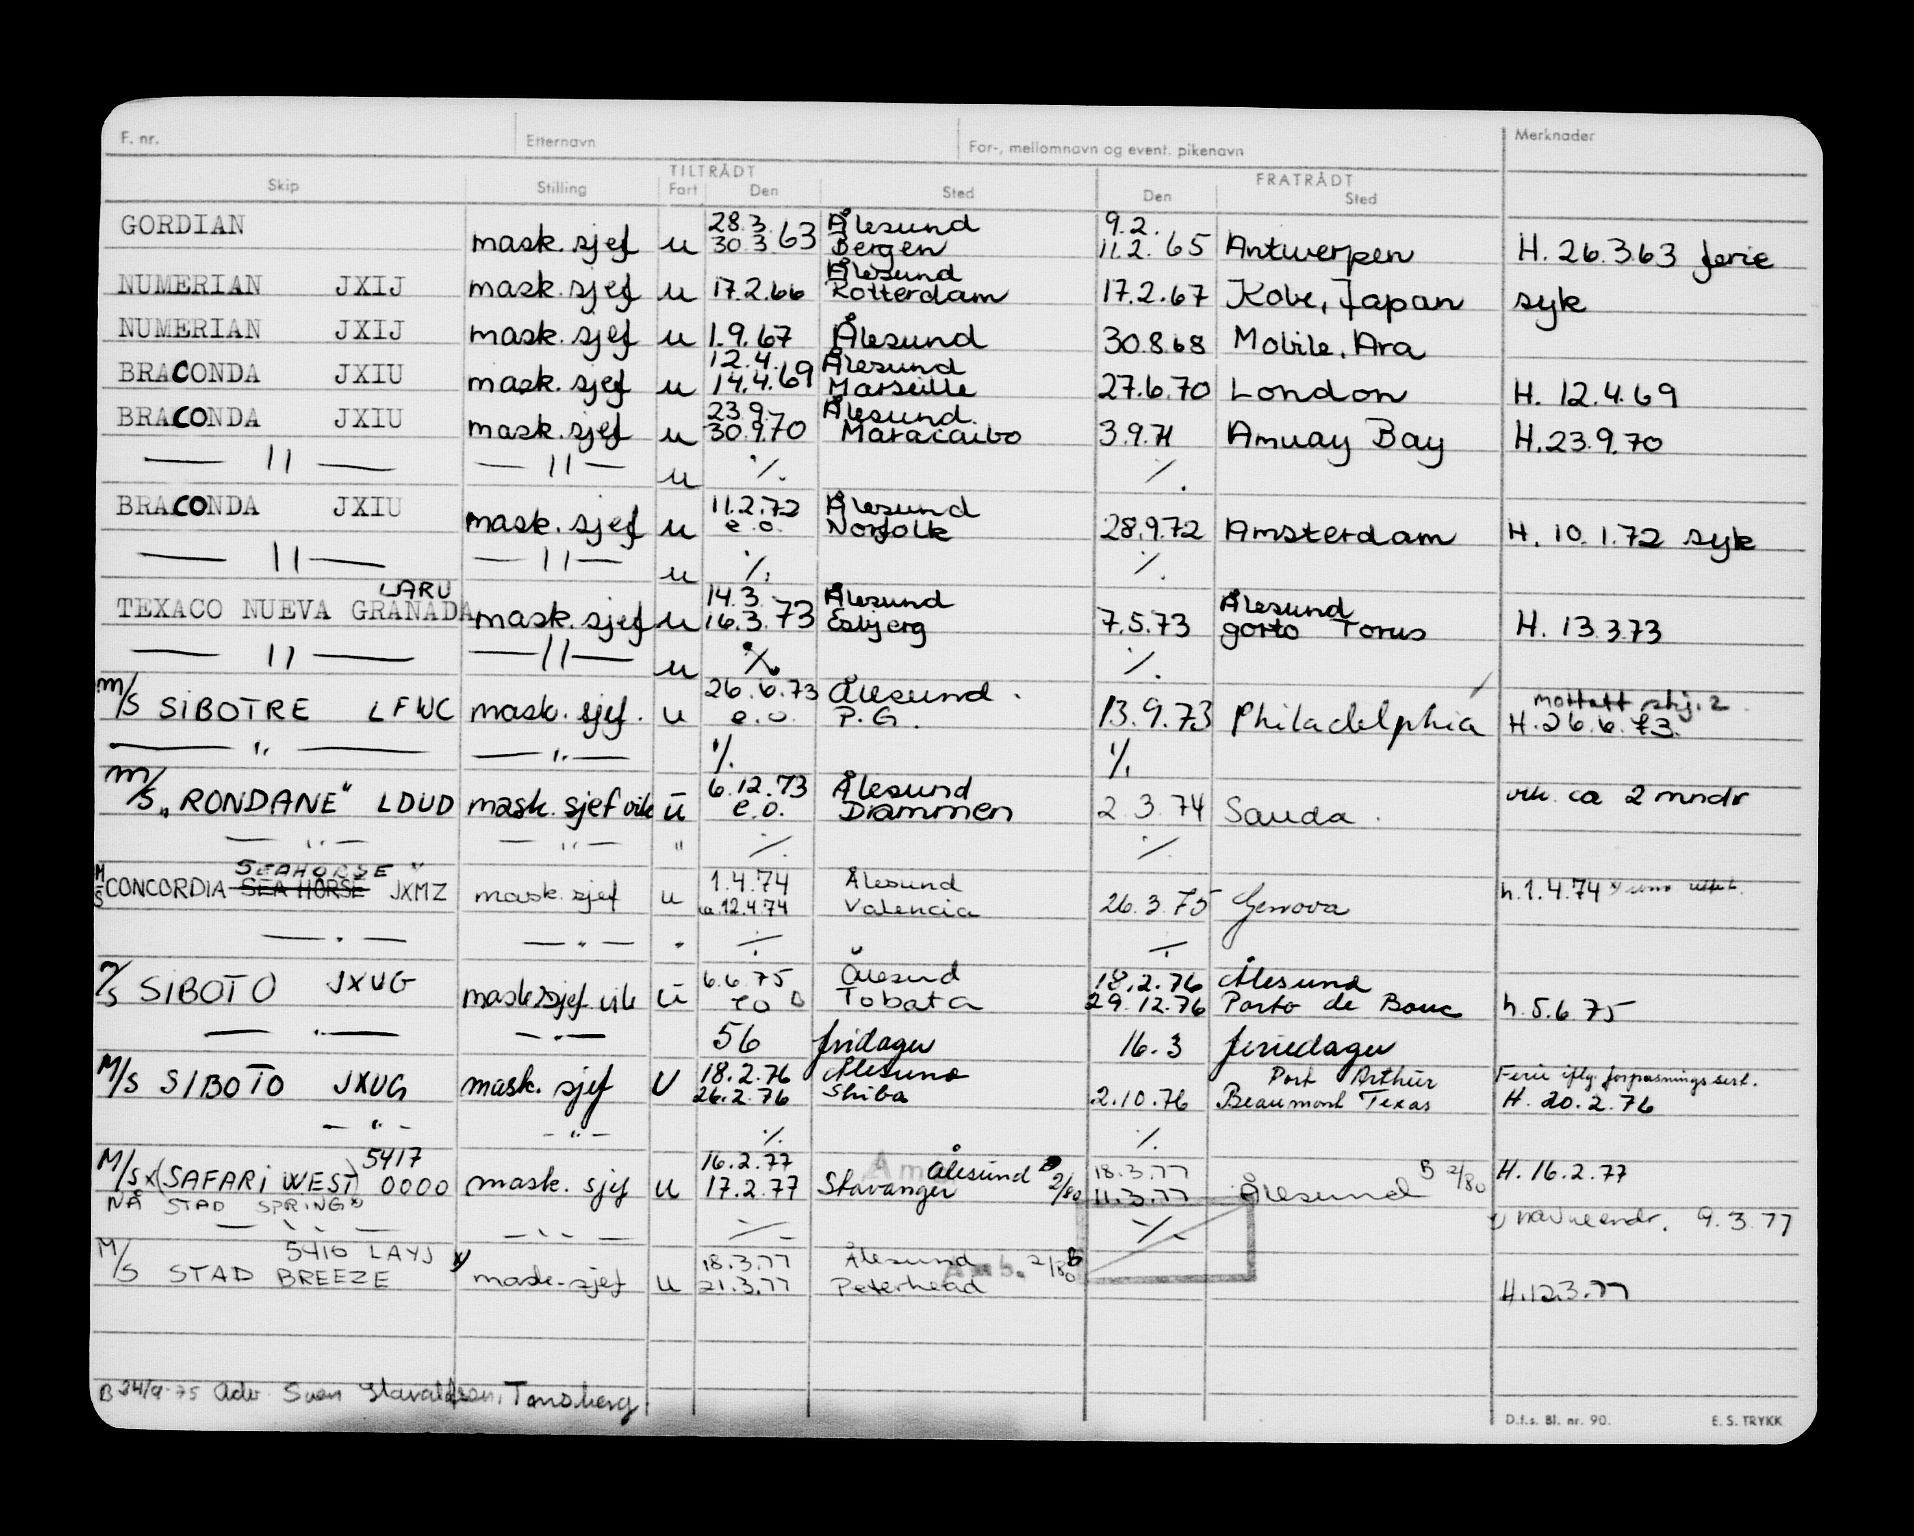 F. nr. Etternavn For-, mellomnavn og event. pikenavn Merknader
TILTRÅDT FRATRÅDT
Skip Stilling Fart Den Sted Den Sted
GORDIAN mask. sjef u 28.3. 30.3.63 Ålesund Bergen 9.2. 11.2.65 Antwerpen H. 26.3.63 ferie
NUMERIAN JXIJ mask. sjef u 17.2.66 Ålesund Rotterdam 17.2.67 Kobe, Japan syk
NUMERIAN JXIJ mask. sjef u 1.9.67 Ålesund 30.8.68 Mobile. Ara
BRACONDA JXIU mask. sjef u 12.4. 14.4.69 Ålesund Marseille 27.6.70 London H. 12.4.69
BRACONDA JXIU mask. sjef u 23.9. 30.9.70 Ålesund. Maracaibo 3.9.71 Amuay Bay H. 23.9.70
— 11 — — 11 — u ⁒ ⁒
BRACONDA JXIU mask. sjef u 11.2.72 e.o. Ålesund Norfolk 28.9.72 Amsterdam H. 10.1.72 syk
— 11 — — 11 — u ⁒ ⁒
LARU
TEXACO NUEVA GRANADA mask. sjef u 14.3. 16.3.73 Ålesund Esbjerg 7.5.73 Ålesund gorto Torus H. 13.3.73
— 11 — — 11 — u ⁒ ⁒
m/s SIBOTRE LFWC mask. sjef. u 26.6.73 e.o. Ålesund. P.G. 13.9.73 Philadelphia mottatt skj. 2 H. 26.6.73.
— " — — " — ⁒ ⁒
m/s "RONDANE" LDUD mask. sjef vik ū 6.12.73 e.o. Ålesund Drammen 2.3.74 Sauda. vik. ca 2 mndr
— " — — " — " ⁒ ⁒
SEAHORSE "
M/S CONCORDIA SEA HORSE JXMZ mask. sjef u 1.4.74 ca 12.4.74 Ålesund Valencia 26.3.75 Genova h. 1.4.74
— " — — " — " ⁒ ⁒
T/S SIBOTO JXUG mask sjef vik ū 6.6.75 eo B Ålesund Tobata 18.2.76 29.12.76 Ålesund Porto de Bouc h. 5.6.75
— " — — " — 56 fridager 16.3 feriedager
M/S SIBOTO JXUG mask. sjef U 18.2.76 26.2.76 Ålesund Shiba 2.10.76 Port Arthur Beaumont Texas Ferie iflg. forpasningssert. H. 20.2.76
— " — — " — ⁒ ⁒
M/S x (SAFARI WEST) 5417 0000 mask. sjef u 16.2.77 17.2.77 Ålesund Stavanger B 2/80 18.3.77 11.3.77 Ålesund B 2/80 H. 16.2.77
NÅ STAD SPRING" x) navneendr. 9.3.77
— " — — " — ⁒ ⁒
M/S STAD BREEZE 5416 LAYJ x) mask. sjef u 18.3.77 21.3.77 Ålesund Peterhead Amb. 2/80 B H. 12.3.77
B 24/9-75 Adv. Sven Tønsberg
D.f.s. Bl. nr. 90. E. S. TRYKK